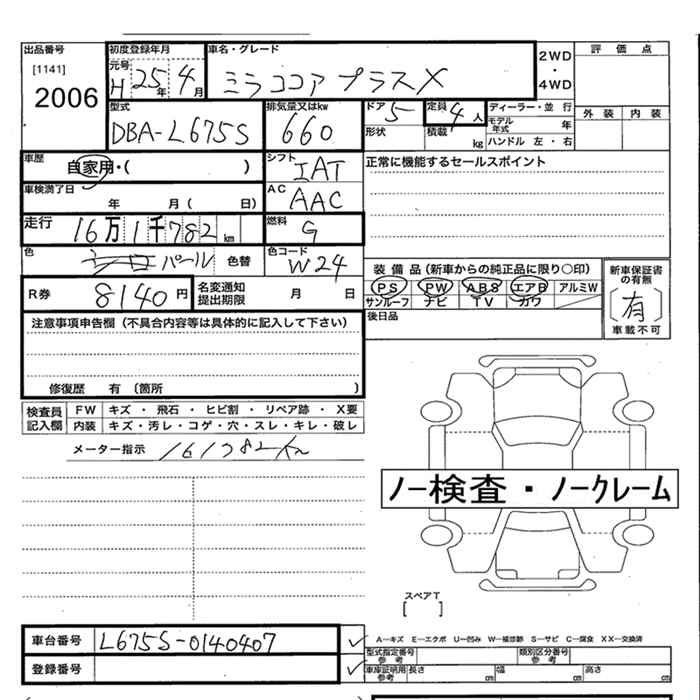 出品番号
[1141]
2006
初度登録年月
元号
H 25年 4月
車名・グレード
ミラココア プラスX
2WD
・
4WD
評価点
外装 内装
型式
DBA-L675S
排気量又はkw
660
ドア 5
形状
定員 4人
積載 kg
ディーラー・並行
モデル年式 年
ハンドル 左・右
車歴
自家用・( )
シフト
IAT
正常に機能するセールスポイント
車検満了日
年 月 ( 日)
AC
AAC
走行
16万1千782km
燃料
G
色
パール 色替
色コード
W24
R券 8140円
名変通知
提出期限
月 日
装備品(新車からの純正品に限り○印)
PS PW ABS エアB アルミW
サンルーフ ナビ TV カワ
後日品
新車保証書
の有無
[有]
車載不可
注意事項申告欄(不具合内容等は具体的に記入して下さい)
修復歴 有 〔箇所 )
検査員
記入欄
FW キズ ・ 飛石 ・ ヒビ割 ・ リペア跡 ・ X要
内装 キズ・汚レ・コゲ・穴・スレ・キレ・破レ
メーター指示 161782km
ノー検査・ノークレーム
スペアT
[ ]
車台番号 L675S-0140407
登録番号
A―キズ E―エクボ U―凹み W―補修跡 S―サビ C―腐食 XX―交換済
型式指定番号
参考
類別区分番号
参考
車庫証明用
参考
長さ cm 幅 cm 高さ cm